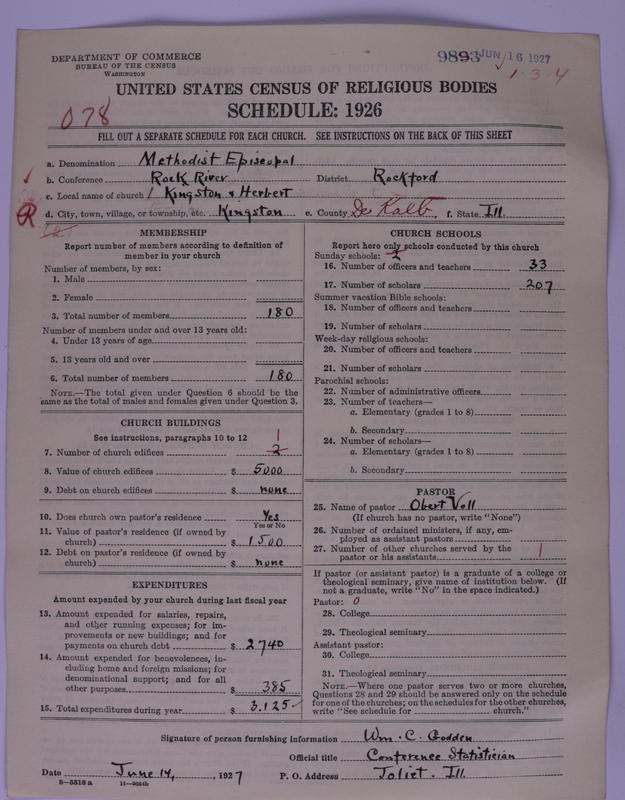 DEPARTMENT OF COMMERCE
BUREAU OF THE CENSUS
WASHINGTON
9893 JUN 16 1927
1-3-4
UNITED STATES CENSUS OF RELIGIOUS BODIES
SCHEDULE: 1926
078
FILL OUT A SEPARATE SCHEDULE FOR EACH CHURCH. SEE INSTRUCTIONS ON THE BACK OF THIS SHEET
a. Denomination Methodist Episcopal
b. Conference Rock River District Rockford
c. Local name of church Kingston & Herbert
R d. City, town, village, or township, etc. Kingston e. County De Kalb, f. State Ill.
MEMBERSHIP
Report number of members according to definition of
member in your church
Number of members, by sex:
1. Male
2. Female
3. Total number of members 180
Number of members under and over 13 years old:
4. Under 13 years of age
5. 13 years old and over
6. Total number of members 180
NOTE.—The total given under Question 6 should be
same as the total of males and females given under Question 3.
CHURCH BUILDINGS
See instructions, paragraphs 10 to 12 1
7. Number of church edifices 2
8. Value of church edifices $ 5000
9. Debt on church edifices $ none
10. Does church own pastor's residence Yes
Yes or No
11. Value of pastor's residence (if owned by
church) $ 1500
12. Debt on pastor's residence (if owned by
church) $ none
EXPENDITURES
Amount expended by your church during last fiscal year
13. Amount expended for salaries, repairs,
and other running expenses; for im-
provements or new buildings; and for
payments on church debt $ 2740
14. Amount expended for benevolences, in-
cluding home and foreign missions; for
denominational support; and for all
other purposes $ 385
15. Total expenditures during year $ 3.125
CHURCH SCHOOLS
Report here only schools conducted by this church
Sunday schools: 2
16. Number of officers and teachers 33
17. Number of scholars 207
Summer vacation Bible schools:
18. Number of officers and teachers
19. Number of scholars
Week-day religious schools:
20. Number of officers and teachers
21. Number of scholars
Parochial schools:
22. Number of administrative officers
23. Number of teachers—
a. Elementary (grades 1 to 8)
b. Secondary
24. Number of scholars—
a. Elementary (grades 1 to 8)
b. Secondary
PASTOR
25. Name of pastor Obert Voll
(If church has no pastor, write "None")
26. Number of ordained ministers, if any, em-
ployed as assistant pastors
27. Number of other churches served by the
pastor or his assistants 1
If pastor (or assistant pastor) is a graduate of a college or
theological seminary, give name of institution below. (If
not a graduate, write "No" in the space indicated.)
Pastor: 0
28. College
29. Theological seminary
Assistant pastor:
30. College
31. Theological seminary
NOTE.—Where one pastor serves two or more churches,
Questions 28 and 29 should be answered only on the schedule
for one of the churches; on the schedules for the other churches,
write "See schedule for church."
Signature of person furnishing information Wm. C. Godden
Official title Conference Statistician
Date June 14, 1927 P. O. Address Joliet. Ill.
8—5518 a